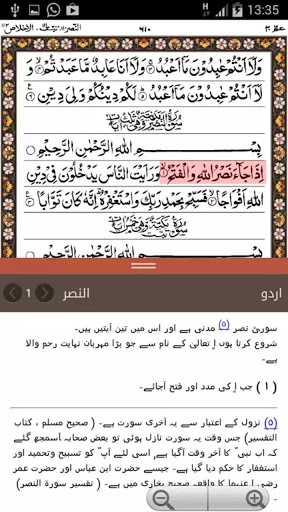 13:35
النصر ... الاخلاص ٦١٠ عم ٣٠
وَلَآ اَنْتُمْ عٰبِدُوْنَ مَآ اَعْبُدُ وَلَآ اَنَا عَابِدٌ مَّا عَبَدْتُّمْ
وَلَآ اَنْتُمْ عٰبِدُوْنَ مَآ اَعْبُدُ لَكُمْ دِيْنُكُمْ وَلِيَ دِيْنِ
بِسْمِ اللهِ الرَّحْمٰنِ الرَّحِيْمِ
اِذَا جَآءَ نَصْرُ اللهِ وَالْفَتْحُ وَرَاَيْتَ النَّاسَ يَدْخُلُوْنَ فِيْ دِيْنِ
اللهِ اَفْوَاجًا فَسَبِّحْ بِحَمْدِ رَبِّكَ وَاسْتَغْفِرْهُ اِنَّهٗ كَانَ تَوَّابًا
بِسْمِ اللهِ الرَّحْمٰنِ الرَّحِيْمِ
اردو النصر 1
سورئ نصر (۵) مدنی ہے اور اس میں تین آیتیں ہیں۔
شروع کرتا ہوں اٖ تعالیٰ کے نام سے جو بڑا مہربان نہایت رحم والا ہے۔
(۱) جب اٖ کی مدد اور فتح آجائے۔
(۵) نزول کے اعتبار سے یہ آخری سورت ہے۔ (صحیح مسلم ، کتاب
التفسیر) جس وقت یہ سورت نازل ہوئی تو بعض صحابہ سمجھ گئے
کہ اب نبی کا آخر وقت آگیا ہے اسی لئے آپ کو تسبیح وتحمید اور
استغفار کا حکم دیا گیا ہے۔ جیسے حضرت ابن عباس اور حضرت عمر
رضی اٖ عنہما کا واقعہ صحیح بخاری میں ہے۔ (تفسیر سورة النصر)